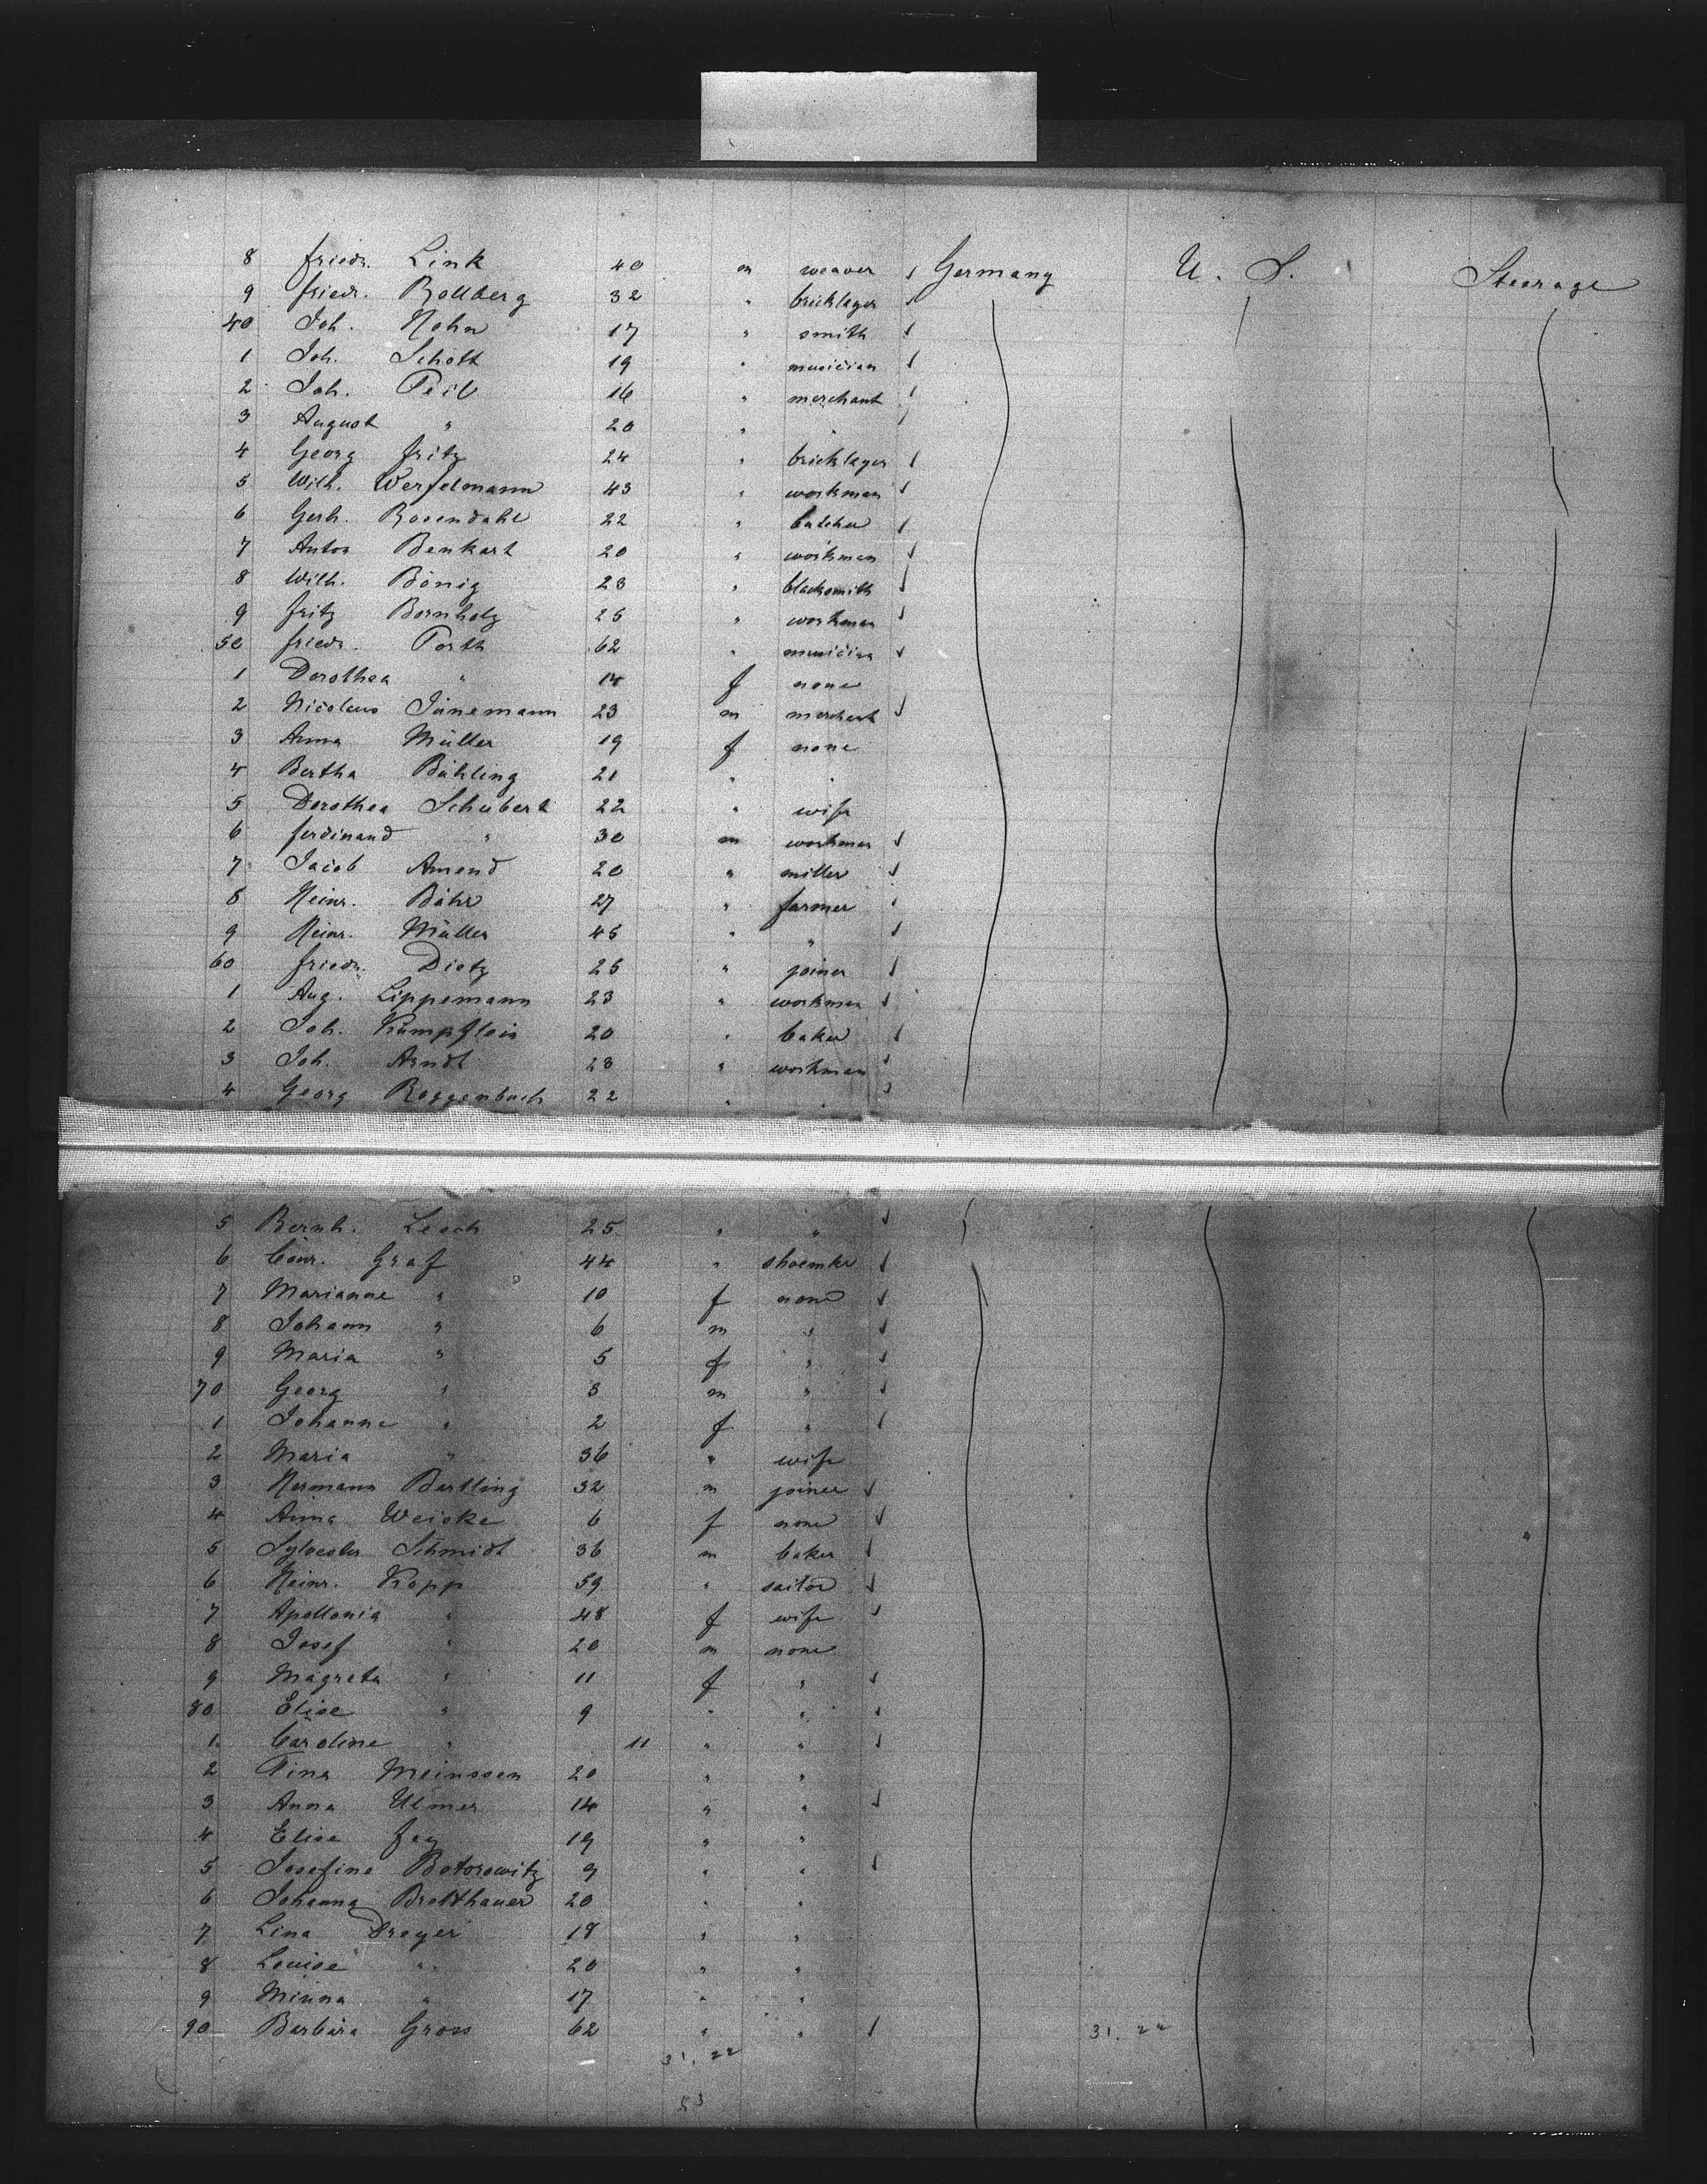 8 Friedr. Link 40 m weaver Germany U. S. Steerage
9 Friedr. Bollberg 32 " bricklayer
40 Joh. Hohn 17 " smith
1 Joh. Schott 19 " musician
2 Joh. Peil 16 " merchant
3 August " 20 " "
4 Georg Fritz 24 " bricklayer
5 Wilh. Werfelmann 43 " workman
6 Gerh. Rosendahl 22 " butcher
7 Anton Benkart 20 " workman
8 Wilh. Bönig 23 " blacksmith
9 Fritz Bornholz 25 " workman
50 Friedr. Porth 62 " musician
1 Dorothea " 14 f none
2 Nicolaus Jünemann 23 m merchant
3 Anna Müller 19 f none
4 Bertha Bühling 21 " "
5 Dorothea Schubert 22 " wife
6 Ferdinand " 30 m workman
7 Jacob Amend 20 " miller
8 Heinr. Bähr 27 " farmer
9 Heinr. Müller 45 " "
60 Friedr. Dietz 25 " joiner
1 Aug. Lippemann 23 " workman
2 Joh. 20 " baker
3 Joh. Arndt 23 " workman
4 Georg Roggenbuch 22 " "
5 Bernh. Lesch 25 " "
6 Conr. Graf 44 " shoemkr
7 Marianne " 10 f none
8 Johann " 6 m "
9 Maria " 5 f "
70 Georg " 3 m "
1 Johanne " 2 f "
2 Maria " 36 " wife
3 Hermann Bartling 32 m joiner
4 Anna Weiske 6 f none
5 Sylvester Schmidt 36 m baker
6 Heinr. Kopp 59 " sailor
7 Apollonia " 48 f wife
8 Josef " 20 m none
9 Magreta " 11 f "
80 Elise " 9 " "
1 Caroline " 11 " "
2 Tina Meinssen 20 " "
3 Anna Ulmer 14 " "
4 Elise Fey 19 " "
5 Josefine Botorowitz 9 " "
6 Johanna Brotthauer 20 " "
7 Lina Dreyer 18 " "
8 Louise " 20 " "
9 Minna " 17 " "
90 Barbara Gross 62 " "
31. 22 31. 22
53